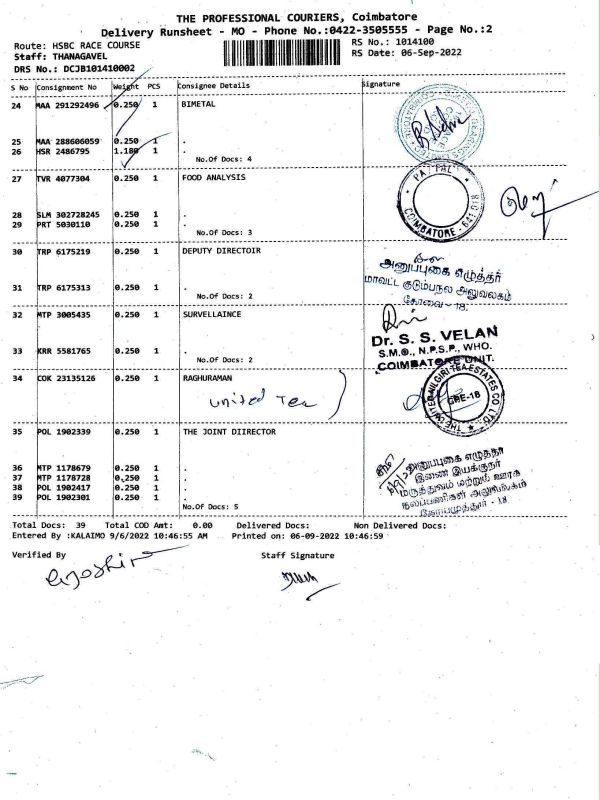 THE PROFESSIONAL COURIERS, Coimbatore
Delivery Runsheet - MO - Phone No.:0422-3505555 - Page No.:2
Route: HSBC RACE COURSE RS No.: 1014100
Staff: THANAGAVEL RS Date: 06-Sep-2022
DRS No.: DCJB101410002
S No Consignment No Weight PCS Consignee Details Signature
24 MAA 291292496 0.250 1 BIMETAL
25 MAA 288606059 0.250 1 .
26 HSR 2486795 1.180 1 .
No.Of Docs: 4
27 TVR 4077304 0.250 1 FOOD ANALYSIS
PAYPAL
28 SLM 302728245 0.250 1 .
29 PRT 5030110 0.250 1 .
COIMBATORE - 641 018
No.Of Docs: 3
30 TRP 6175219 0.250 1 DEPUTY DIRECTOIR
அனுப்புகை எழுத்தர்
மாவட்ட குடும்பநல அலுவலகம்
கோவை - 18.
31 TRP 6175313 0.250 1 .
No.Of Docs: 2
32 MTP 3005435 0.250 1 SURVELLAINCE
Dr. S. S. VELAN
S.M.O., N.P.S.P., WHO.
COIMBATORE UNIT.
33 KRR 5581765 0.250 1 .
No.Of Docs: 2
34 COK 23135126 0.250 1 RAGHURAMAN
United Tea
THE UNITED NILGIRI TEA ESTATES CO LTD
CBE-18
35 POL 1902339 0.250 1 THE JOINT DIIRECTOR
அனுப்புகை எழுத்தர்
இணை இயக்குநர்
மருத்துவம் மற்றும் ஊரக
நலப்பணிகள் அலுவலகம்
கோயமுத்தூர் - 18
36 MTP 1178679 0.250 1 .
37 MTP 1178728 0.250 1 .
38 POL 1902417 0.250 1 .
39 POL 1902301 0.250 1 .
No.Of Docs: 5
Total Docs: 39 Total COD Amt: 0.00 Delivered Docs: Non Delivered Docs:
Entered By :KALAIMO 9/6/2022 10:46:55 AM Printed on: 06-09-2022 10:46:59
Verified By Staff Signature